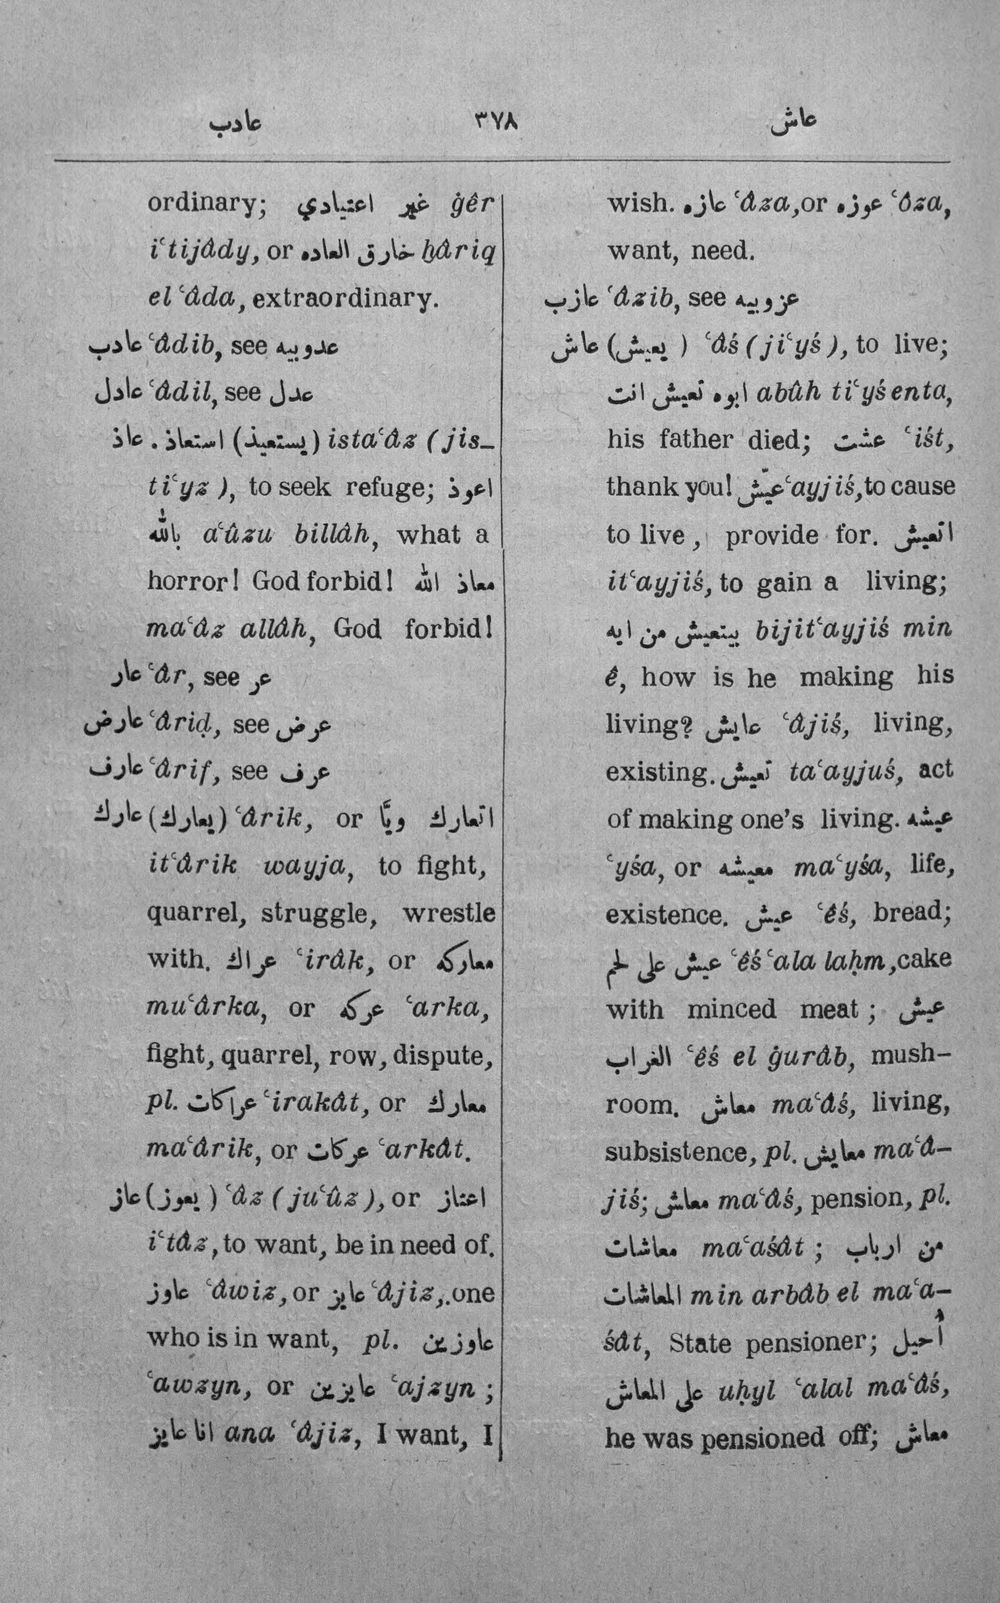 عادب ٣٧٨ عاش
ordinary; غير اعتيادي ġêr
iʿtijâdy, or خارق العاده ḫâriq
el ʿâda, extraordinary.
عادب ʿâdib, see عدوبيه
عادل ʿâdil, see عدل
عاذ . استعاذ (يستعيذ) istaʿâz (jis-
tiʿyz), to seek refuge; اعوذ
بالله aʿûzu billâh, what a
horror! God forbid! معاذ الله
maʿâz allâh, God forbid!
عار ʿâr, see عر
عارض ʿâriḍ, see عرض
عارف ʿârif, see عرف
عارك (يعارك) ʿârik, or اتعارك ويَّا
itʿârik wayja, to fight,
quarrel, struggle, wrestle
with. عراك ʿirâk, or معاركه
muʿârka, or عركه ʿarka,
fight, quarrel, row, dispute,
pl. عراكات ʿirakât, or معارك
maʿârik, or عركات ʿarkât.
عاز (يعوز) ʿâz (juʿûz), or اعتاز
iʿtâz, to want, be in need of.
عاوز ʿâwiz, or عايز ʿâjiz, one
who is in want, pl. عاوزين
ʿawzyn, or عايزين ʿajzyn ;
انا عايز ana ʿâjiz, I want, I
wish. عازه ʿâza, or عوزه ʿôza,
want, need.
عازب ʿâzib, see عزوبيه
عاش (يعيش) ʿâś (jiʿyś), to live;
ابوه تعيش انت abûh tiʿyśenta,
his father died; عشت ʿiśt,
thank you! عيّش ʿayjiś, to cause
to live, provide for. اتعيش
itʿayjiś, to gain a living;
بيتعيش من ايه bijitʿayjiś min
ê, how is he making his
living? عايش ʿâjiś, living,
existing. تعيش taʿayjuś, act
of making one's living. عيشه
ʿyśa, or معيشه maʿyśa, life,
existence. عيش ʿêś, bread;
عيش على لحم ʿêś ʿala laḥm, cake
with minced meat ; عيش
الغراب ʿêś el ġurâb, mush-
room. معاش maʿâś, living,
subsistence, pl. معايش maʿâ-
jiś; معاش maʿâś, pension, pl.
معاشات maʿaśât ; من ارباب
المعاشات min arbâb el maʿa-
śât, State pensioner; أحيل
على المعاش uḥyl ʿalal maʿâś,
he was pensioned off; معاش